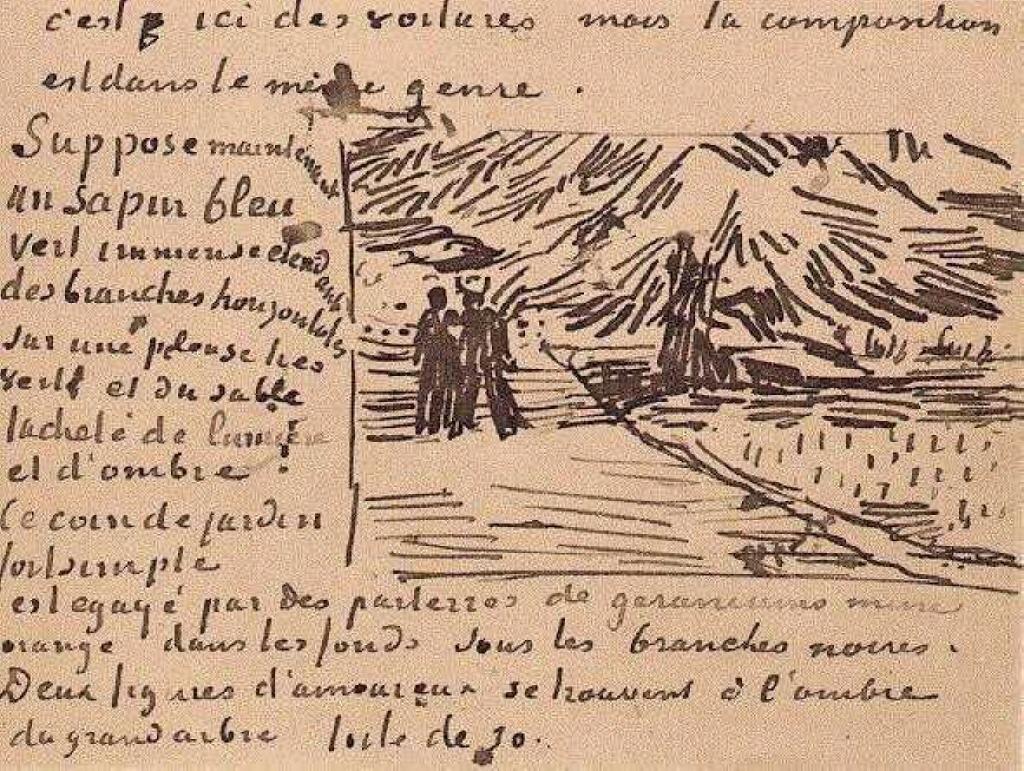 c'est ici des voitures mais la composition
est dans le même genre .
Suppose maintenant
un sapin bleu
vert immense etendant
des branches horizontales
sur une pelouse tres
verte et du sable
tacheté de lumière
et d'ombre .
Ce coin de jardin
fort simple
est egayé par des parterres de geraniums mine
orange dans les fonds sous les branches noires .
Deux figures d'amoureux se trouvent à l'ombre
du grand arbre toile de 30 .